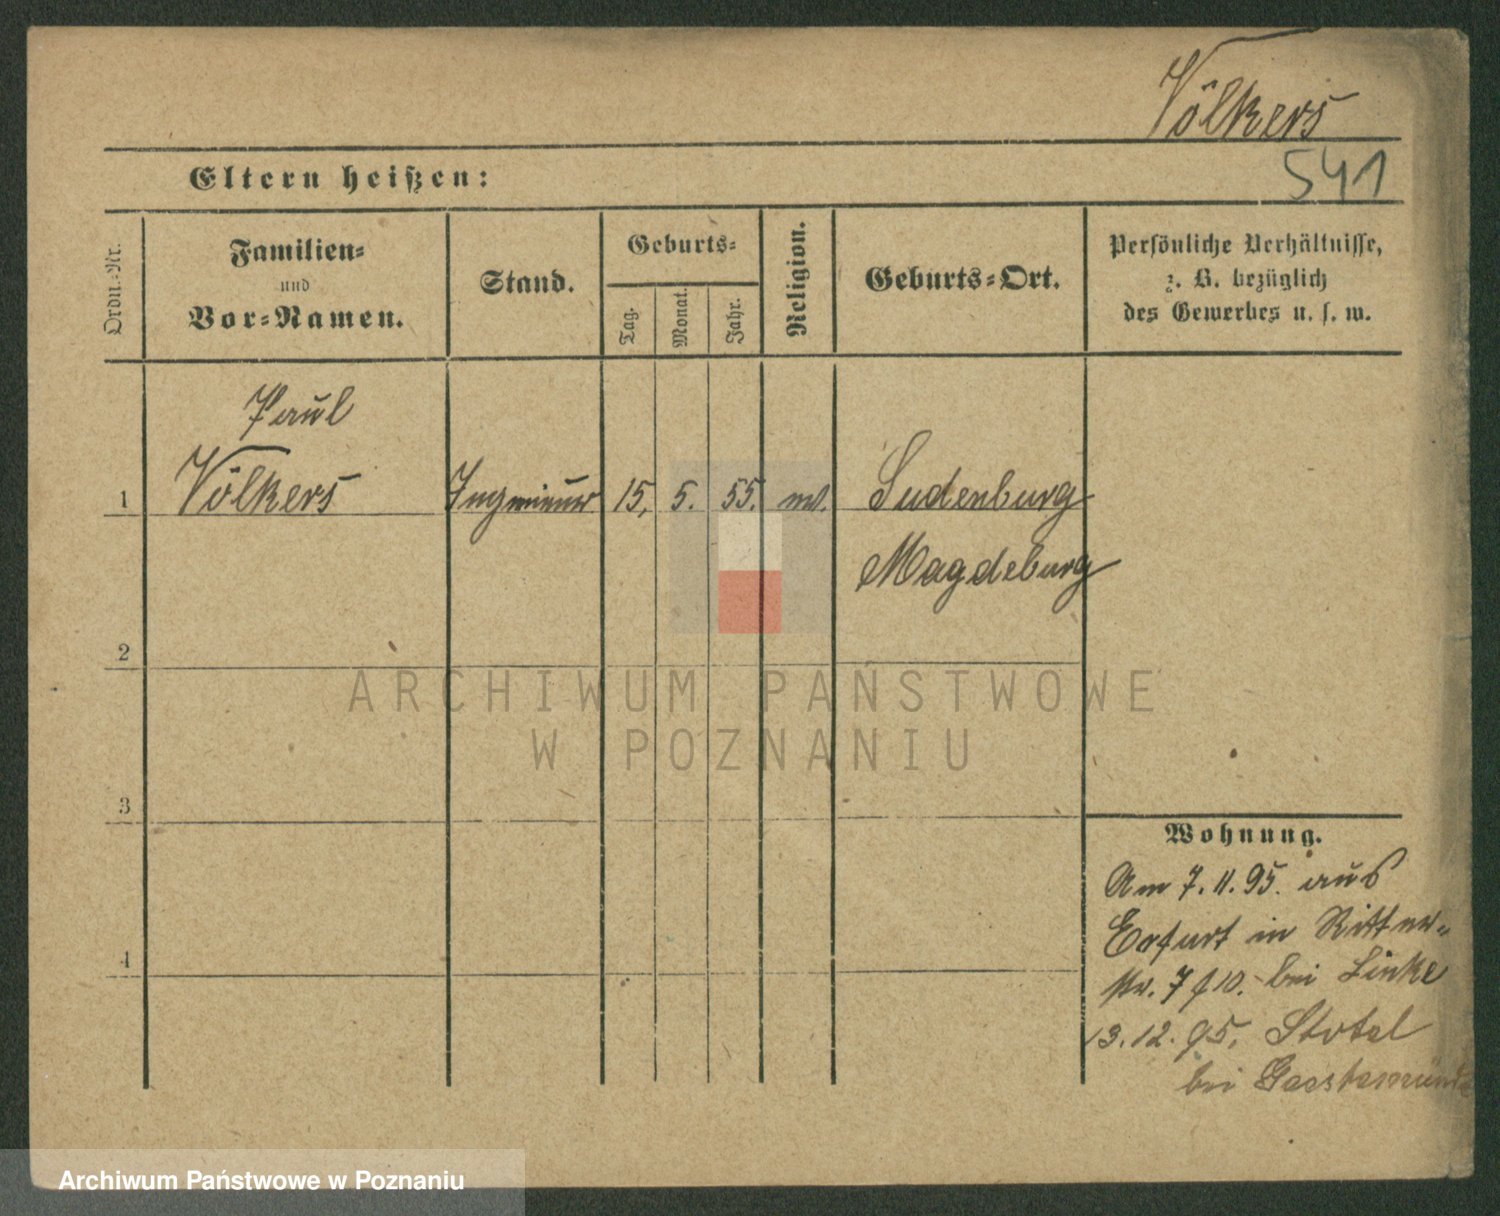 Völkers
Eltern heißen:
541
Ordn.-Nr.
Familien-
und
Vor-Namen.
Stand.
Geburts-
Tag.
Monat.
Jahr.
Religion.
Geburts-Ort.
Persönliche Verhältnisse,
z. B. bezüglich
des Gewerbes u. s. w.
Paul
1 Völkers Ingenieur 15. 5. 55. ev. Sudenburg
Magdeburg
2
ARCHIWUM PAŃSTWOWE
W POZNANIU
3
Wohnung.
Am 7.11.95. aus
Erfurt in Ritter-
str. 7 bei Linke
4
13.12.95. Stotel
bei Geestemünde
Archiwum Państwowe w Poznaniu